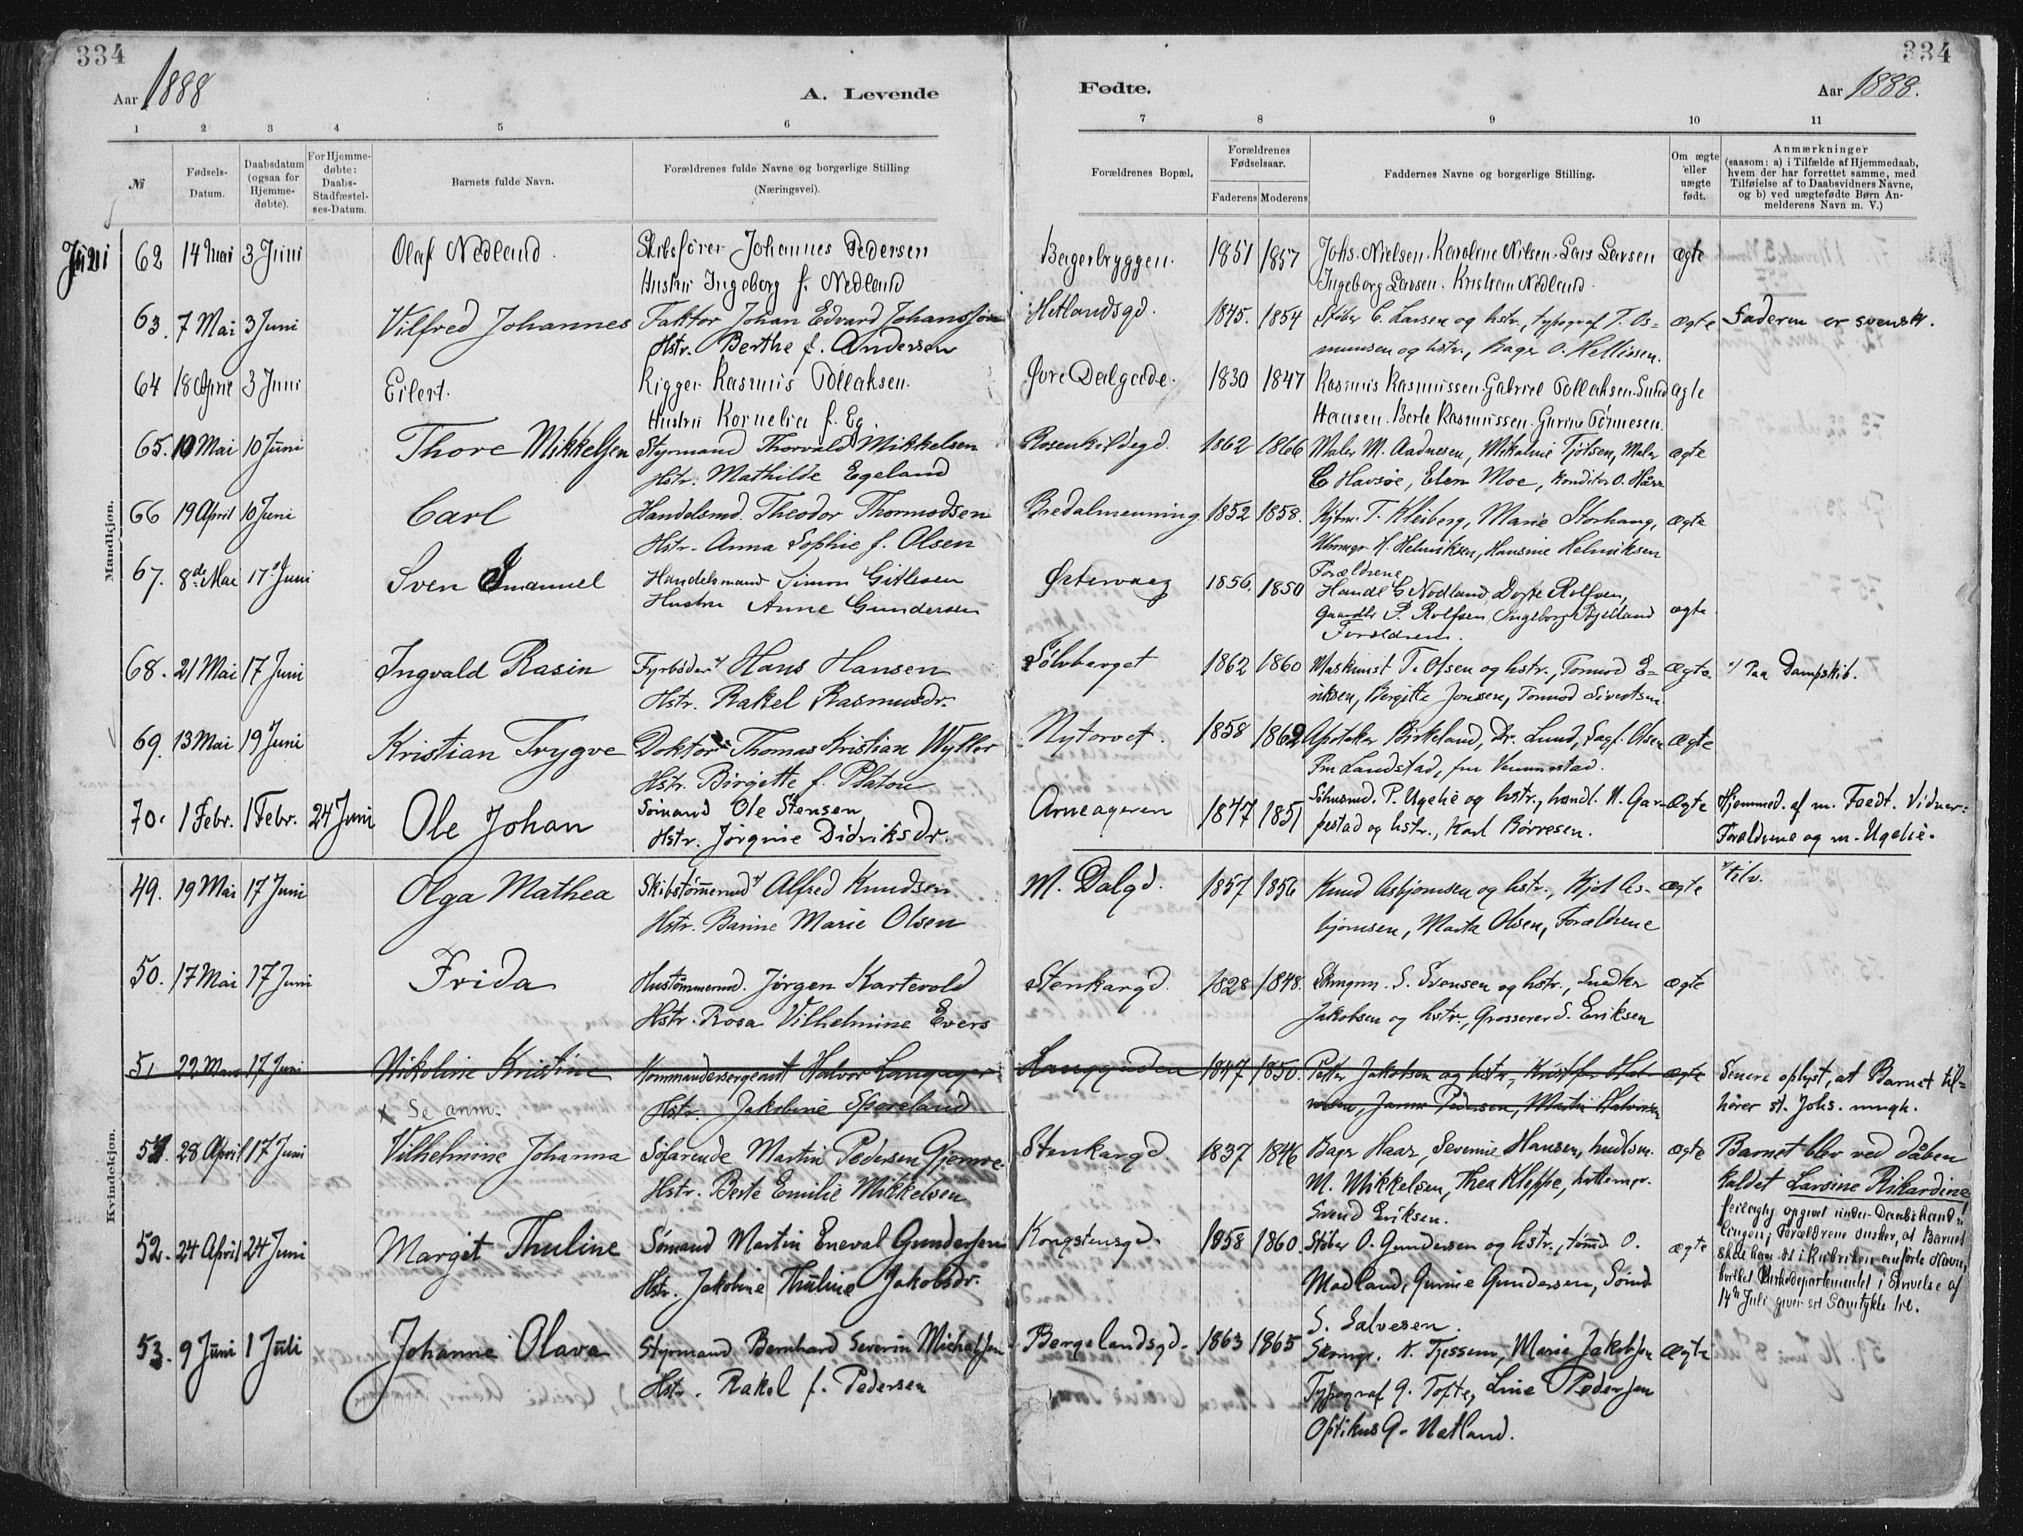 334
334
Aar 1888
A. Levende
Fødte.
Aar 1888.
1 2 3 4 5 6 7 8 9 10 11
№
Fødsels-Datum.
Daabsdatum (ogsaa for Hjemme-døbte).
For Hjemme-døbte: Daabs-Stadfæstel-ses-Datum.
Barnets fulde Navn.
Forældrenes fulde Navne og borgerlige Stilling
(Næringsvei).
Forældrenes Bopæl.
Forældrenes Fødselsaar.
Faderens Moderens
Faddernes Navne og borgerlige Stilling.
Om ægte eller uægte født.
Anmærkninger
(saasom: a) i Tilfælde af Hjemmedaab,
hvem der har forrettet samme, med
Tilføielse af to Daabsvidners Navne,
og b) ved uægtefødte Børn An-
melderens Navn m. V.)
Juni
Mandkjøn.
62 14 Mai 3 Juni Olaf Nedland. Skibsfører Johannes Pedersen Bagerbryggen. 1851 1857 Johs. Nielsen. Karoline Nilsen. Lars Larsen ægte
Hustru Ingeborg f. Nedland Ingeborg Larsen. Kristian Nedland.
63. 7 Mai 3 Juni Vilfred Johannes Faktor Johan Edvard Johanssøn Hetlandsgd. 1845. 1854 Støber C. Larsen og hstr., typograf T. Os= ægte Faderen er svensk.
Hstr. Berthe f. Andersen mundsen og hstr., Bager O. Hellissen.
64 18 April 3 Juni Eilert. Rigger Rasmus Tollaksen. Øvre Dalgade. 1830 1847 Rasmus Rasmussen. Gabriel Tollaksen. ægte
Hustru Kornelia f. Eg. Hansen. Berte Rasmussen. Gurine Tønnesen.
65. 10 Mai 10 Juni Thore Mikkelsen Styrmand Thorvald Mikkelsen Rosenkildegd. 1862 1866 Maler M. Aadnesen, Mikaline Tjølsen, Maler ægte
Hstr. Mathilde Egeland C Havsøe, Elen Moe, Konditor O. Haar
66 19 April 10 Juni Carl Handelsmd. Theodor Thormodsen Bredalmenning 1852 1858. Kjbm. T. Kleiberg, Marie Storhaug, ægte
Hstr. Anna Sophie f. Olsen H. Helviksen, Hansine Helviksen
Forældrene
67. 8de Mai 17' Juni Sven Imanuel Handelsmand Simon Gitlesen Østervaag 1856. 1850 Handl C Nodland, Dorte Rolfsen, ægte
Hustru Anne Gundersen Gaardbr P. Rolfsen, Ingeborg Bjelland
Forældrene.
68. 21 Mai 17 Juni Ingvald Rasin Fyrbøder Hans Hansen Sølvberget 1862 1860 Maskinist T. Olsen og hstr., Tormod E= ægte. Paa Dampskib.
Hstr. Rakel Rasmusdr. riksen, Bergitte Jonsen, Tormod Sivertsen.
69. 13 Mai 19 Juni Kristian Trygve Doktor Thomas Kristian Wyller Nytorvet. 1858 1862 Apoteker Birkeland, Dr. Lund, Sagf. Olsen ægte
Hstr. Birgitte f. Platou Fru Landstad, fru Vennestad.
70. 1 Febr. 1 Febr. 24 Juni Ole Johan Sømand Ole Stensen Arneageren 1847 1851 P. Ugelie og hstr., handl. N. Gar- Ægte Hjemmed. af m. Foedt. Vidner:
Hstr. Jørgine Didriksdr. pestad og hstr., Karl Børresen. Forældrene og m. Ugelie.
Kvindekjøn.
49. 19 Mai 17 Juni Olga Mathea Skibstømmermd Alfred Knudsen M. Dalgd. 1857 1856 Knud Asbjørnsen og hstr., Kjol As- ægte
Hstr. Barine Marie Olsen bjørnsen, Marta Olsen, Forældrene
50. 17 Mai 17 Juni Frida Hustømmermd. Jørgen Kartevold Stenkargd. 1828 1848. S. Svensen og hstr., Snedker ægte
Hstr. Rosa Vilhelmine Evers Jakobsen og hstr., Grosserer S. Eriksen
51 22 Mars 17 Juni Nikoline Kristine Kommandersergeant Halvor Langager Langgaden 1847 1850. Petter Jakobsen og hstr., Kristofer Hal- ægte Senere oplyst, at Barnet til-
x Se anm. Hstr. Jakobine Sporeland Janne Pedersen, Martin Halvorsen hører st. Johs. mngh.
51 28 April 17 Juni Vilhelmine Johanna Søfarende Martin Pedersen Gjemre. Stenkargd 1837 1846 Bager Haar, Severine Hansen, ægte Barnet blev ved dåben
Hstr. Berte Emilie Mikkelsen M. Mikkelsen, Thea Kleppe, kaldet Larsine Rikardine,
Svend Eriksen. feilagtig opgivet under Daabshand-
52. 24 April 24 Juni Margit Thuline Sømand Martin Eneval Gundersen Kongstensgd. 1858 1860. Støber O. Gundersen og hstr., tømd. O. ægte lingen; Forældrene ønsker, at Barnet
Hstr. Jakobine Thuline Jakobsdr. Madland, Gurine Gundersen, Sømd skal have det i Rubriken anførte Navn,
S. Salvesen. hvilket Kirkedepartementet i Skrivelse af
14de Juli giver sit Samtykke til.
53. 9 Juni 1 Juli Johanne Olava Styrmand Bernhard Severin Michelsen Bergelandsgd. 1863 1865 K. Tjessem, Marie Jakobsen Ægte
Hstr. Rakel f. Pedersen Typograf G. Tofte, Line Pedersen
Optikus G. Natland.